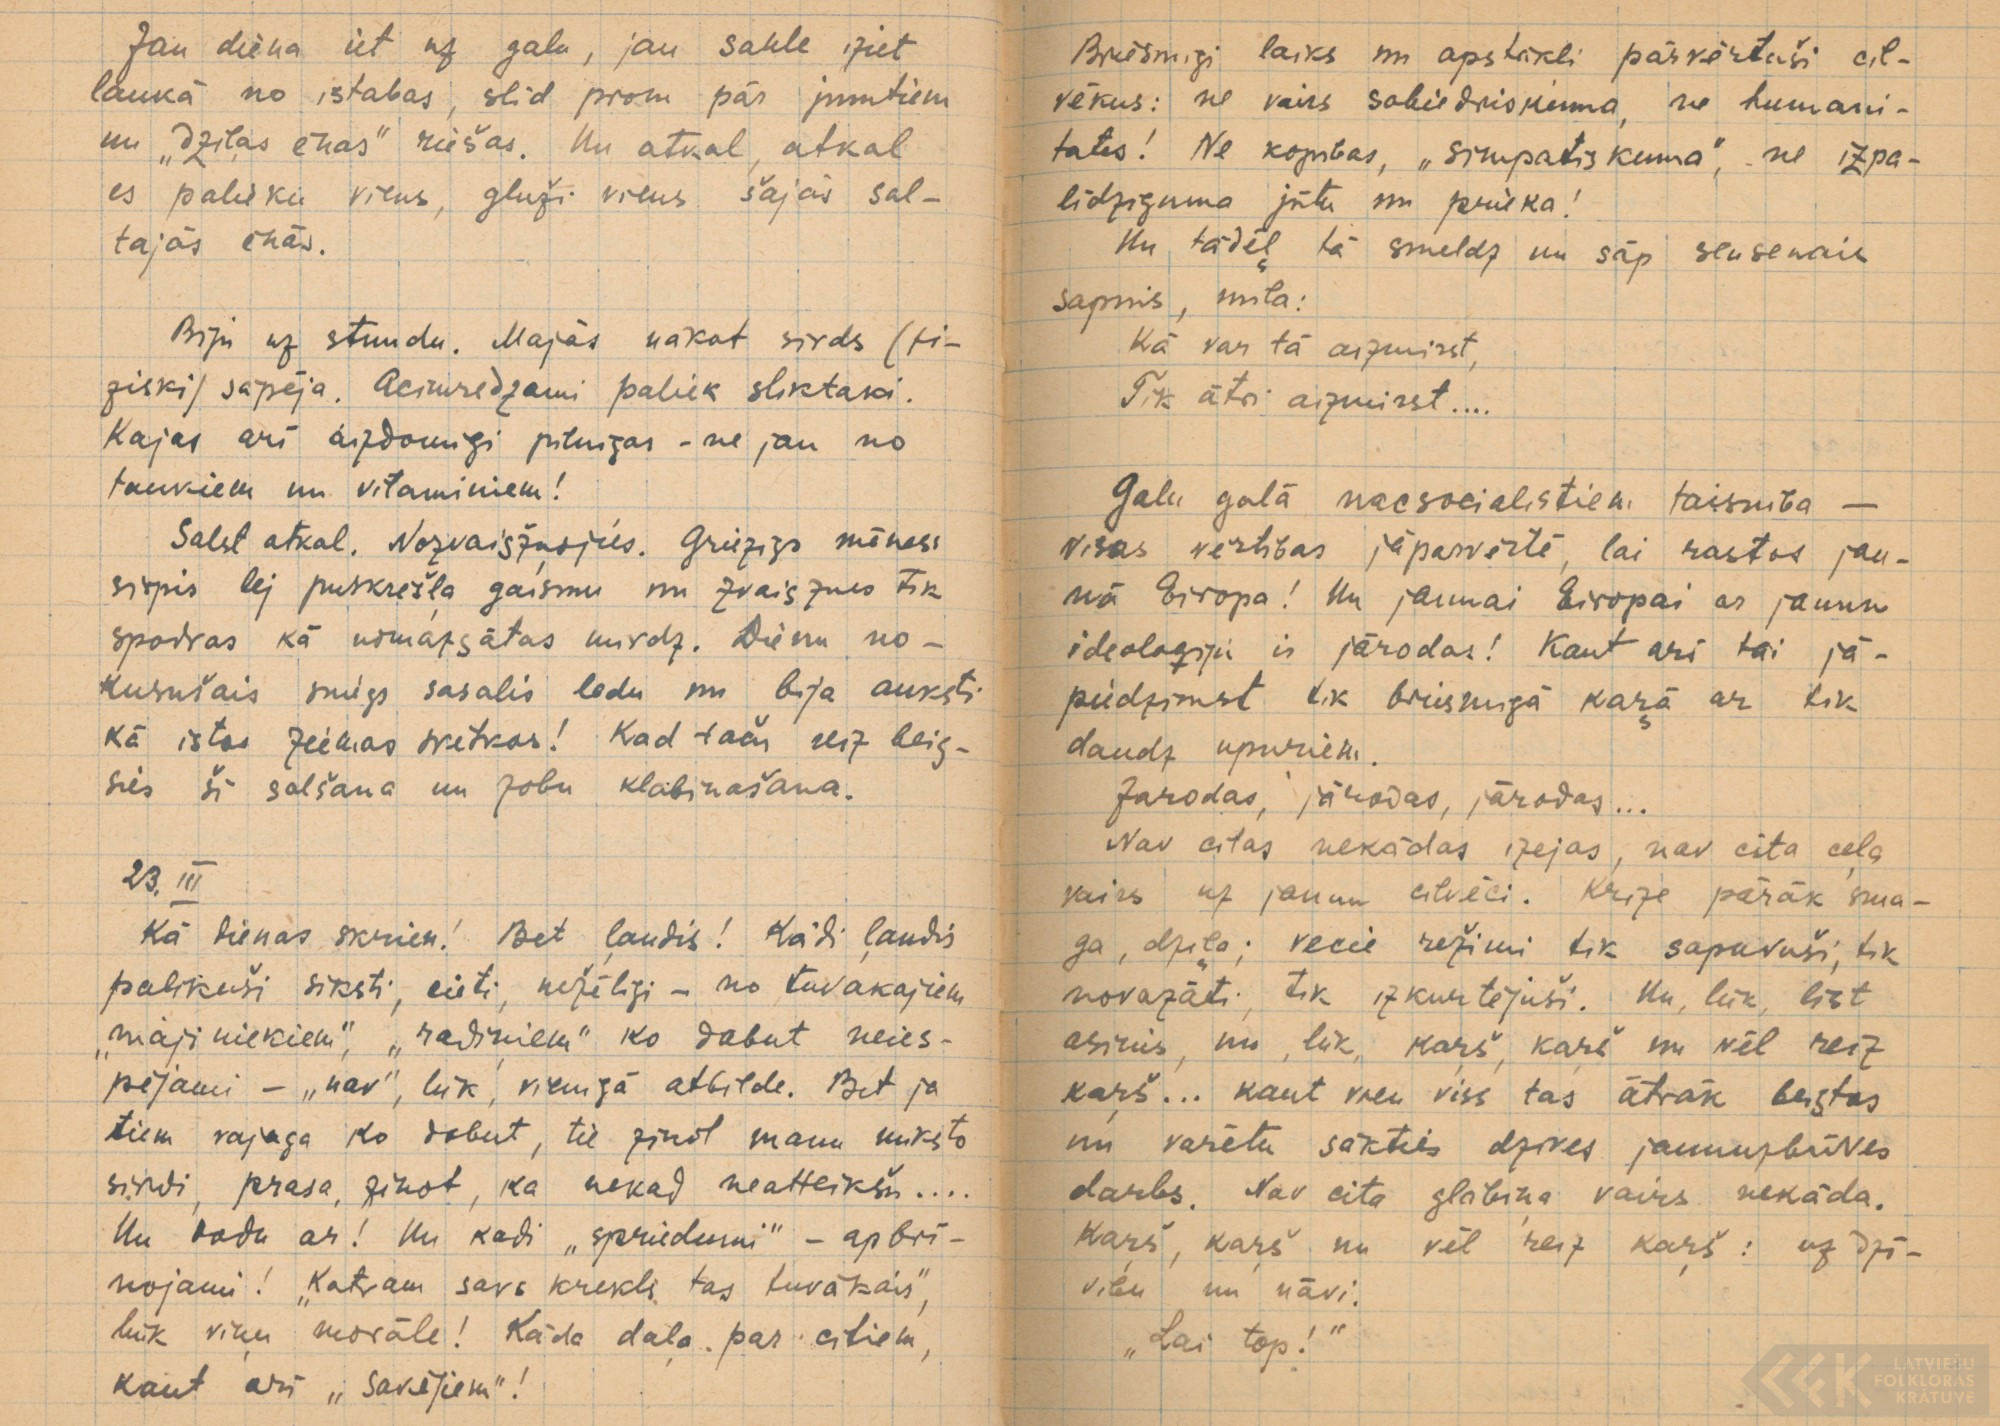 Jau diena iet uz galu, jau saule iziet
laukā no istabas, slīd prom pār jumtiem
un „dziļas ēnas" riešas. Un atkal, atkal
es palieku viens, gluži viens šajās sal-
tajās ēnās.
Biju uz stundu. Majās nākot sirds (fi-
ziski) sāpēja. Acimredzami paliek sliktaki.
Kajas arī aizdomīgi pilnīgas - ne jau no
taukiem un vitaminiem!
Salst atkal. Nozvaigžņojies. Griezīgs mēness
sirpis lej puskrešļa gaismu un zvaigznes tik
spodras kā nomazgātas mirdz. Dienu no-
kusušais sniegs sasalis ledū un bija auksti
kā īstos ziemas svētkos! Kad taču reiz beig-
sies šī salšana un zobu klabinašana.
23. III
Kā dienas skrien! Bet ļaudis! Kādi ļaudis
palikuši sīksti, cieti, nežēlīgi - no tuvakajiem
„mājiniekiem", „radiņiem" ko dabut neies-
pējami - „nav", lūk, vienīgā atbilde. Bet ja
tiem vajaga ko dabut, tie zinot manu mīksto
sirdi, prasa, zinot, ka nekad neatteikšu....
Un dodu ar! Un kadi „spriedumi" - apbrī-
nojami! „Katram savs krekls tas tuvākais",
lūk viņu morāle! Kāda daļa par citiem,
kaut arī „savējiem"!
Briesmīgi laiks un apstākli pārvērtuši cil-
vēkus: ne vairs sabiedriskuma, ne humani-
tates! Ne kopības, „simpatiskuma", ne izpa-
līdzīguma jūtu un prieka!
Un tādēļ tā smeldz un sāp sensenais
sapnis, mīla:
Kā var tā aizmirst,
Tik ātri aizmirst....
Galu galā nacsocialistiem taisnība —
visas vērtības jāpārvērtē, lai rastos jau-
nā Eiropa! Un jaunai Eiropai ar jaunu
ideoloģiju ir jārodas! Kaut arī tai jā-
piedzimst tik briesmīgā kaŗā ar tik
daudz upuriem.
Jarodas, jārodas, jārodas...
Nav citas nekādas izejas, nav cita ceļa
vairs uz jaunu cilvēci. Krize pārāk sma-
ga, dziļa; vecie režimi tik sapuvuši, tik
novazāti, tik izkurtējuši. Un, lūk, līst
asinis, un, lūk, kaŗš, kaŗš un vēl reiz
kaŗš... kaut vien viss tas ātrāk beigtos
un varētu sākties dzīves jaunuzbūves
darbs. Nav cita glābiņa vairs nekāda.
Kaŗš, kaŗš un vēl reiz kaŗš: uz dzī-
vību un nāvi.
„Lai top!"
LATVIEŠU
FOLKLORAS
KRĀTUVE